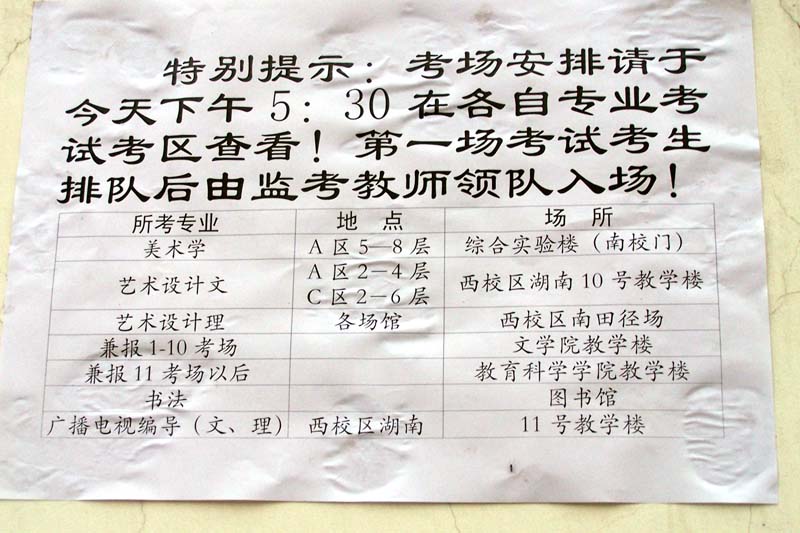 特别提示：考场安排请于
今天下午 5：30 在各自专业考
试考区查看！第一场考试考生
排队后由监考教师领队入场！
所考专业 地 点 场 所
美术学 A 区 5—8 层 综合实验楼（南校门）
艺术设计文 A 区 2—4 层 C 区 2—6 层 西校区湖南 10 号教学楼
艺术设计理 各场馆 西校区南田径场
兼报 1-10 考场 文学院教学楼
兼报 11 考场以后 教育科学学院教学楼
书法 图书馆
广播电视编导（文、理） 西校区湖南 11 号教学楼